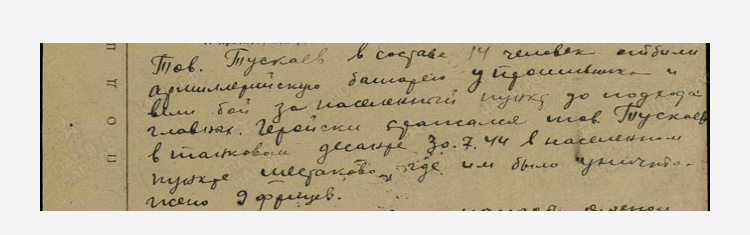 Тов. Тускаев в составе 14 человек отбили
артиллерийскую батарею у противника и
вели бой за населенный пункт до подхода
главных. Геройски сражался тов. Тускаев
в танковом десанте 30.7.44 в населенном
пункте Шестаково, где им было уничто-
жено 9 фрицев.
П О Д